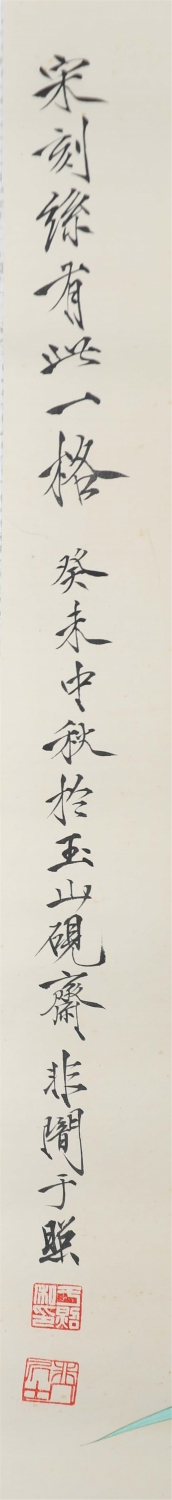 宋刻絲有此一格 癸未中秋於玉山硯齋 非闇于照